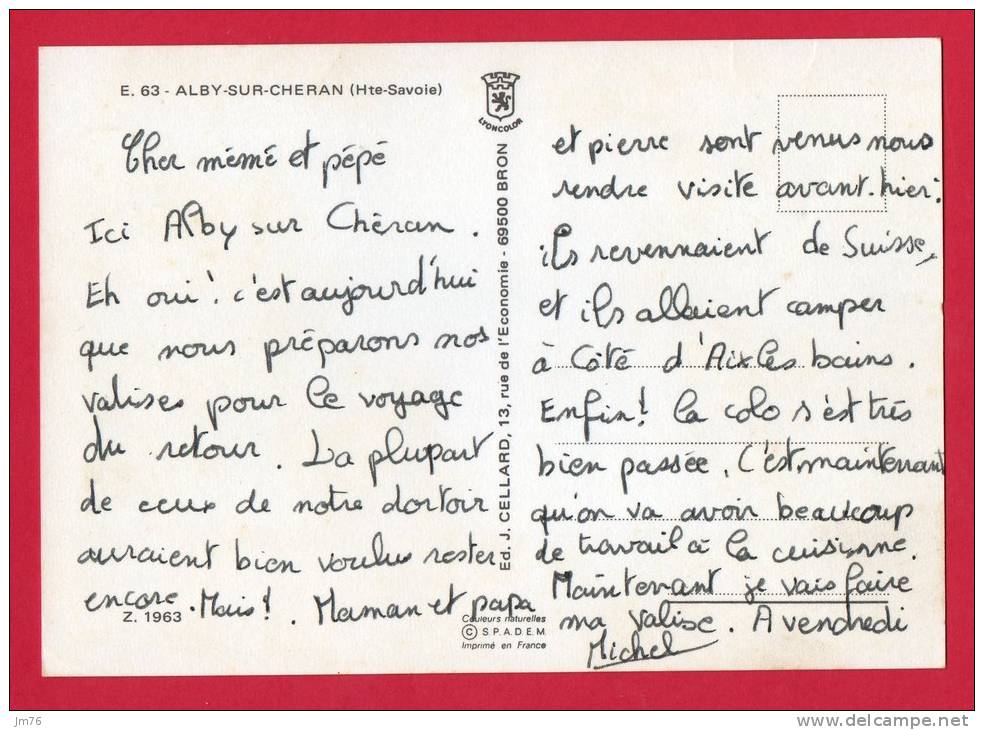 E. 63 - ALBY-SUR-CHERAN (Hte-Savoie)
LYONCOLOR
Cher mémé et pépé
Ici Alby sur Chéran.
Eh oui! c'est aujourd'hui
que nous préparons nos
valises pour le voyage
du retour. La plupart
de ceux de notre dortoir
auraient bien voulus rester
encore. Mais! Maman et papa
Z. 1963
Couleurs naturelles
© S.P.A.D.E.M.
Imprimé en France
Ed. J. CELLARD, 13, rue de l'Economie - 69500 BRON
et pierre sont venus nous
rendre visite avant-hier:
ils revennaient de Suisse,
et ils allaient camper
à Côté d'Aix les bains.
Enfin! la colo s'est très
bien passée. C'est maintenant
qu'on va avoir beaucoup
de travail à la cuisinne.
Maintenant je vais faire
ma valise. A vendredi
Michel
jm76
delcampe.net